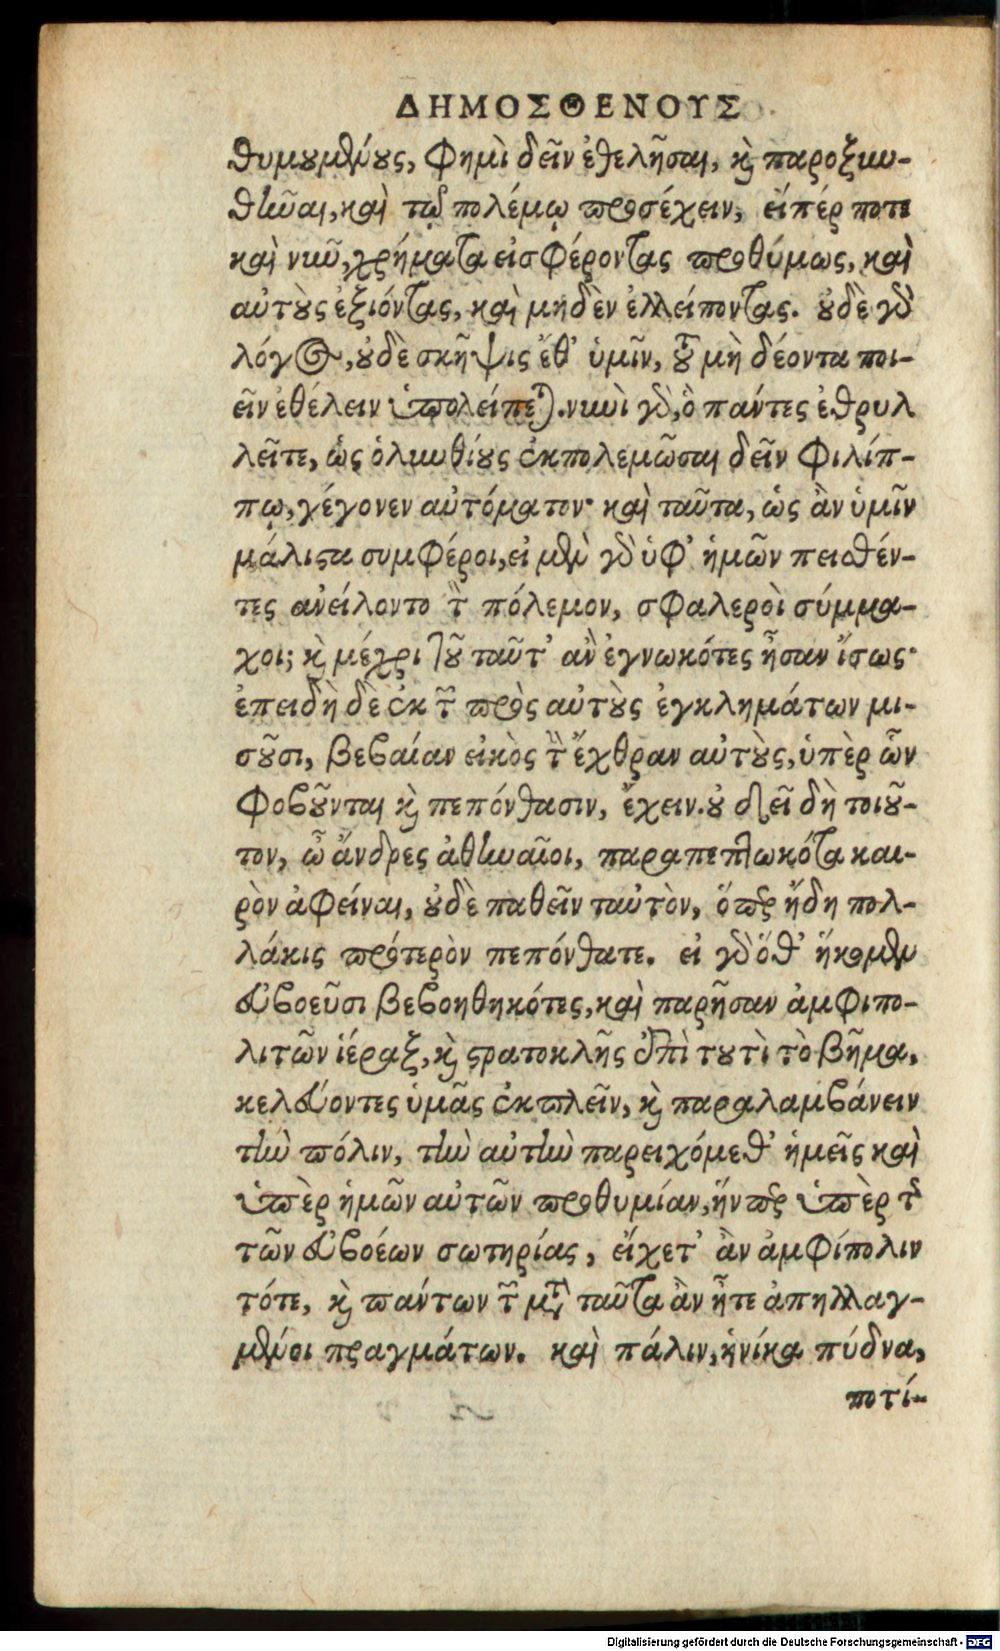 ΔΗΜΟΣΘΕΝΟΥΣ
θυμουμένους, φημὶ δεῖν ἐθελῆσαι, καὶ παροξυν-
θῆναι, καὶ τῷ πολέμῳ προσέχειν, εἴπέρ ποτε
καὶ νῦν, χρήματα εἰσφέροντας προθύμως, καὶ
αὐτοὺς ἐξιόντας, καὶ μηδὲν ἐλλείποντας. οὐδὲ γὰρ
λόγος, οὐδὲ σκῆψις ἔθ' ὑμῖν, τοῦ μὴ δέοντα ποι-
εῖν ἐθέλειν ὑπολείπεται. νυνὶ γὰρ, ὃ πάντες ἐθρυλ
λεῖτε, ὡς ὀλυνθίους ἐκπολεμῶσαι δεῖν Φιλίπ-
πῳ, γέγονεν αὐτόματον· καὶ ταῦτα, ὡς ἂν ὑμῖν
μάλιστα συμφέροι, εἰ μὲν γὰρ ὑφ' ἡμῶν πεισθέν-
τες ἀνείλοντο τὸν πόλεμον, σφαλεροὶ σύμμα-
χοι; καὶ μέχρι τοῦ ταῦτ' ἂν ἐγνωκότες ἦσαν ἴσως·
ἐπειδὴ δὲ ἐκ τῶν πρὸς αὐτοὺς ἐγκλημάτων μι-
σοῦσι, βεβαίαν εἰκὸς τὴν ἔχθραν αὐτοὺς, ὑπὲρ ὧν
φοβοῦνται καὶ πεπόνθασιν, ἔχειν. οὐ δεῖ δὴ τοιοῦ-
τον, ὦ ἄνδρες ἀθηναῖοι, παραπεπτωκότα και-
ρὸν ἀφεῖναι, οὐδὲ παθεῖν ταὐτὸν, ὅπερ ἤδη πολ-
λάκις πρότερὸν πεπόνθατε. εἰ γὰρ ὅθ' ἥκομεν
εὐβοεῦσι βεβοηθηκότες, καὶ παρῆσαν ἀμφιπο-
λιτῶν ἱέραξ, καὶ στρατοκλῆς ἐπὶ τουτὶ τὸ βῆμα,
κελεύοντες ὑμᾶς ἐκπλεῖν, καὶ παραλαμβάνειν
τὴν πόλιν, τὴν αὐτὴν παρειχόμεθ' ἡμεῖς καὶ
ὑπὲρ ἡμῶν αὐτῶν προθυμίαν, ἥνπερ ὑπὲρ τῆς
τῶν εὐβοέων σωτηρίας, εἴχετ' ἂν ἀμφίπολιν
τότε, καὶ πάντων τῶν μετὰ ταῦτα ἂν ἦτε ἀπηλλαγ-
μένοι πραγμάτων. καὶ πάλιν, ἡνίκα πύδνα,
ποτί-
Digitalisierung gefördert durch die Deutsche Forschungsgemeinschaft - DFG